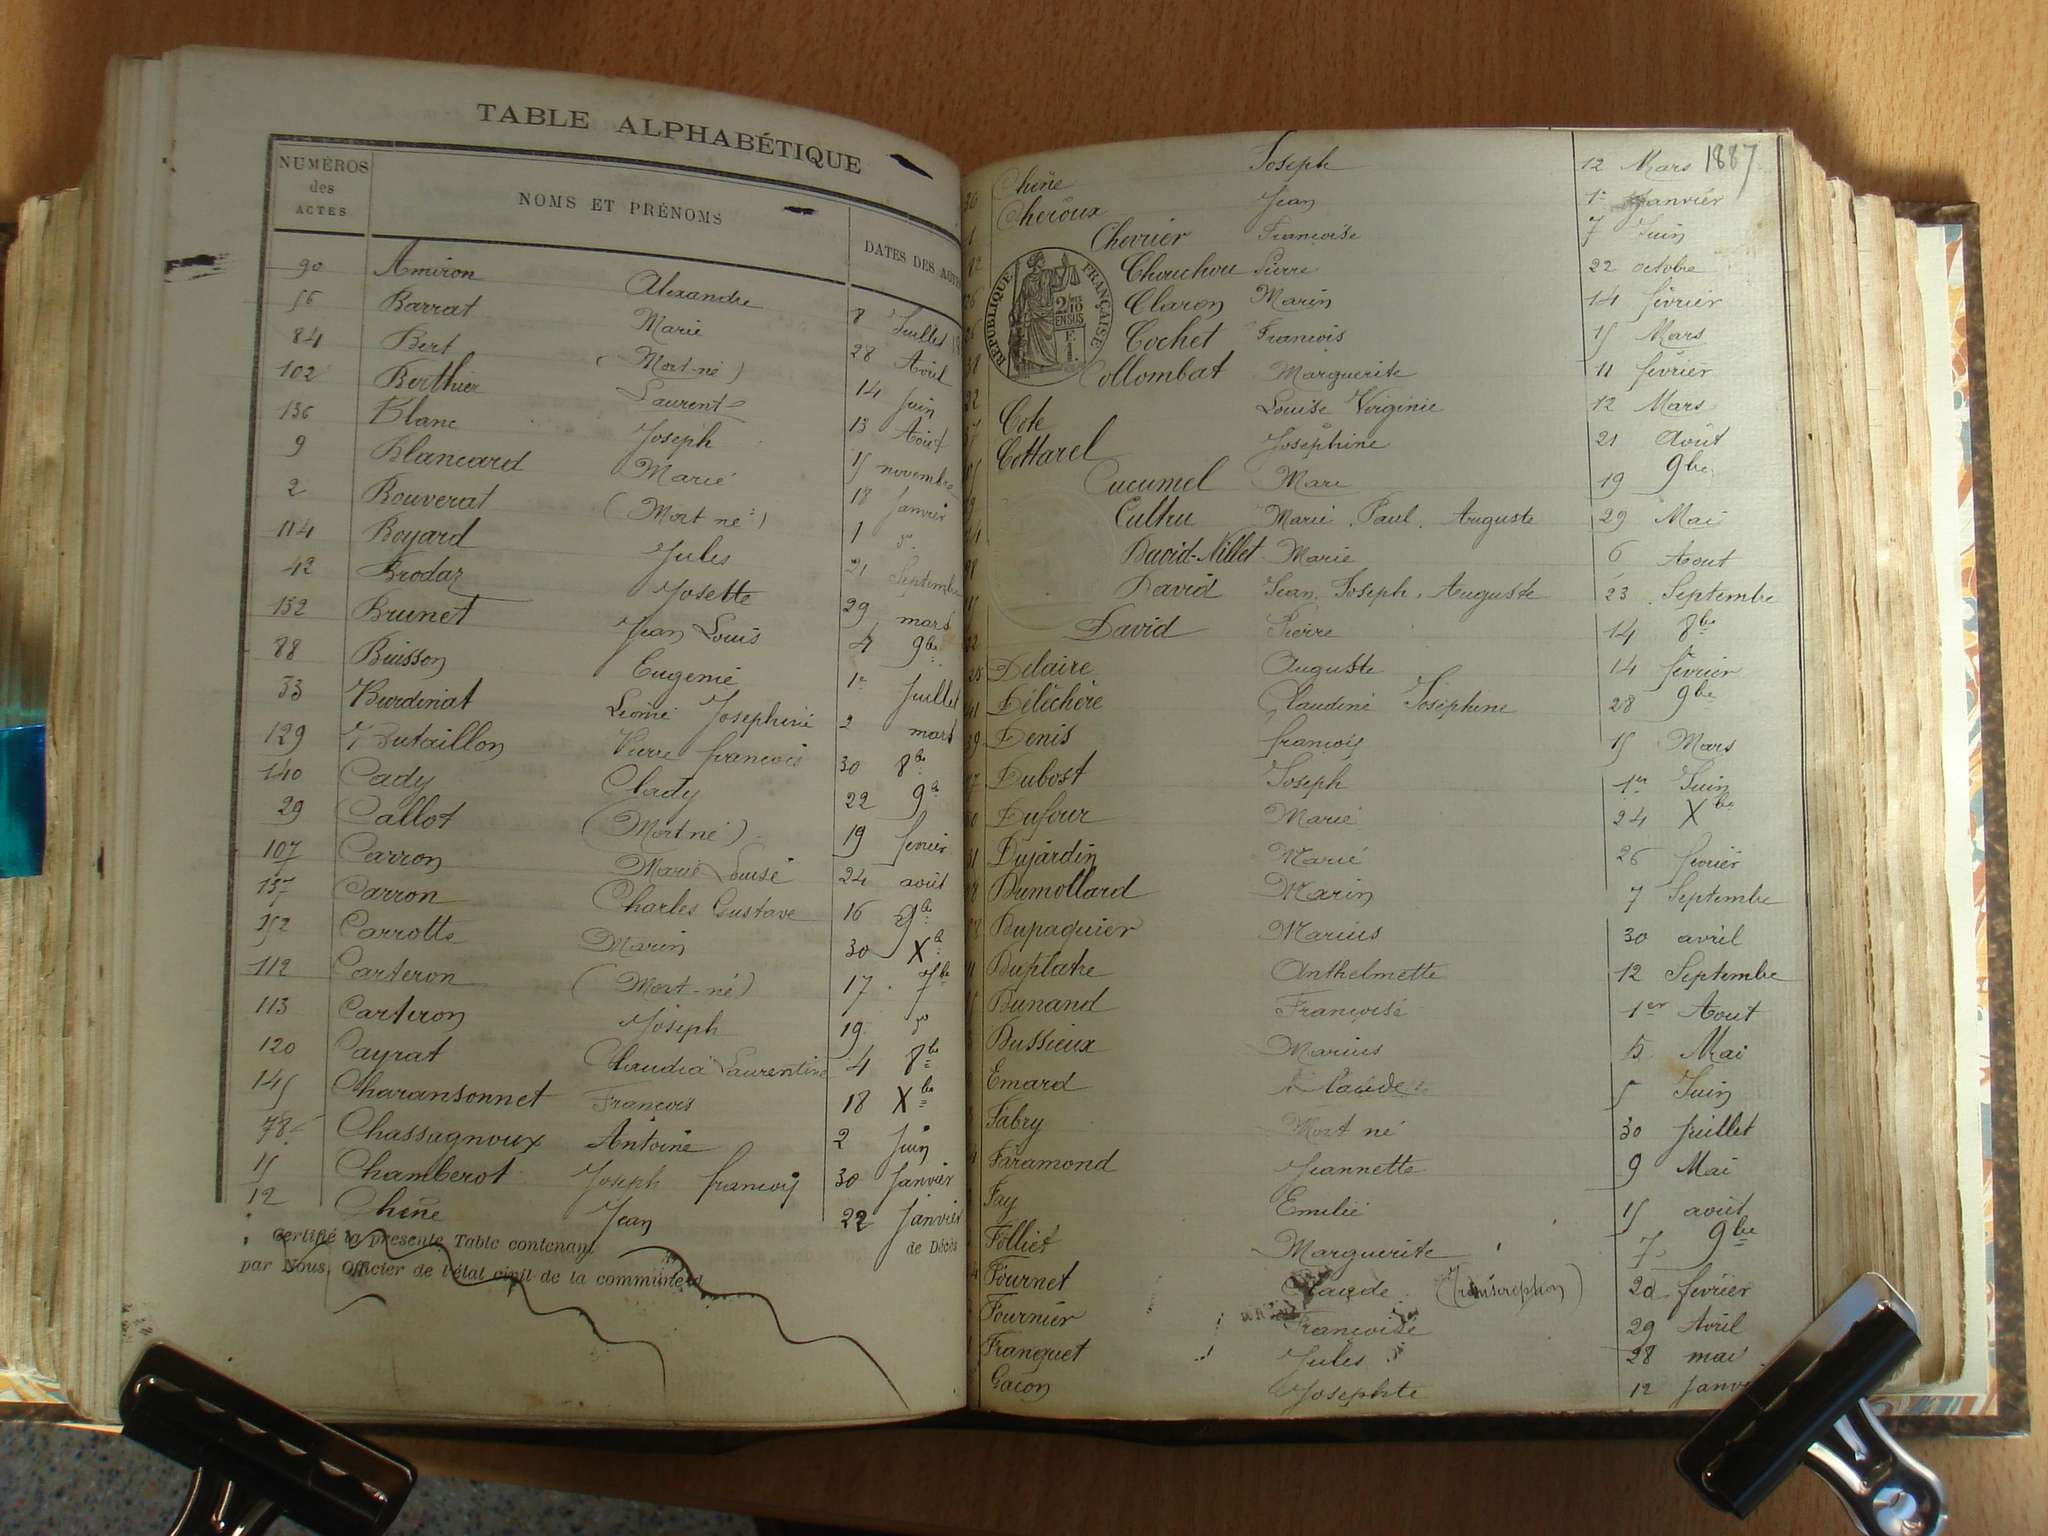 TABLE ALPHABÉTIQUE
NUMÉROS des ACTES NOMS ET PRÉNOMS DATES DES
90 Amiron Alexandre 8 Juillet
56 Barrat Marie 28 Avril
84 Bert (Mort-né) 14 Juin
102 Berthier Laurent 13 Aout
136 Blanc Joseph 15 novembre
9 Blancard Marie 18 Janvier
2 Bouverat (Mort né) 1 do
114 Boyard Jules 21 Septembre
42 Brodaz Josette 29 mars
132 Brunet Jean Louis 4 9bre
88 Buisson Eugenie 1er Juillet
33 Burdinat Leonie Josephine 2 mars
129 Butaillon Pierre françois 30 8bre
140 Cady Clady 22 9b
29 Callot (Mort né) 19 fevrier
107 Carron Marie Louise 24 août
137 Carron Charles Gustave 16 9b
152 Carrotte Marin 30 Xb
112 Carteron (Mort-né) 17 7bre
113 Carteron Joseph 19 do
120 Cayrat Claudia Laurentine 4 8bre
145 Charansonnet François 18 Xbre
78 Chassagnoux Antoine 2 Juin
15 Chamberot Joseph françois 30 Janvier
12 Chêne Jean 22 Janvier
Certifié la présente Table contenant de Décès
par Nous, Officier de l'état civil de la commune d
1887
36 Chêne Joseph 12 Mars
1 Cheroux Jean 1er Janvier
Chevrier Françoise 7 Juin
Chouchou Pierre 22 octobre
Claron Marin 14 février
Cochet François 15 Mars
Collombat Marguerite 11 février
RÉPUBLIQUE FRANÇAISE
2/10 EN SUS
Cote Louise Virginie 12 Mars
Cottarel Joséphine 21 Août
Cucumel Marc 19 9bre
Culthu Marie Paul Auguste 29 Mai
David-Nillet Marie 6 Aout
David Jean Joseph Auguste 23 Septembre
David Pierre 14 8bre
Delaire Auguste 14 février
Déléchère Claudine Joséphine 28 9bre
Denis françois 15 Mars
Dubost Joseph 1er Juin
Dufour Marie 24 Xbre
Dujardin Marie 26 février
Dumollard Marin 7 Septembre
Dupaquier Marius 30 avril
Duplatre Anthelmette 12 Septembre
Dunand Françoise 1er Aout
Dussieux Marius 15 Mai
Emard Claude 5 Juin
Fabry Mort né 30 Juillet
Faramond Jeannette 9 Mai
Fay Emilie 15 août
Folliet Marguerite 7 9bre
Fournet Claude (Transcription) 20 février
Fournier Françoise 29 Avril
Franquet Jules 28 mai
Gacon Josephte 12 Janv